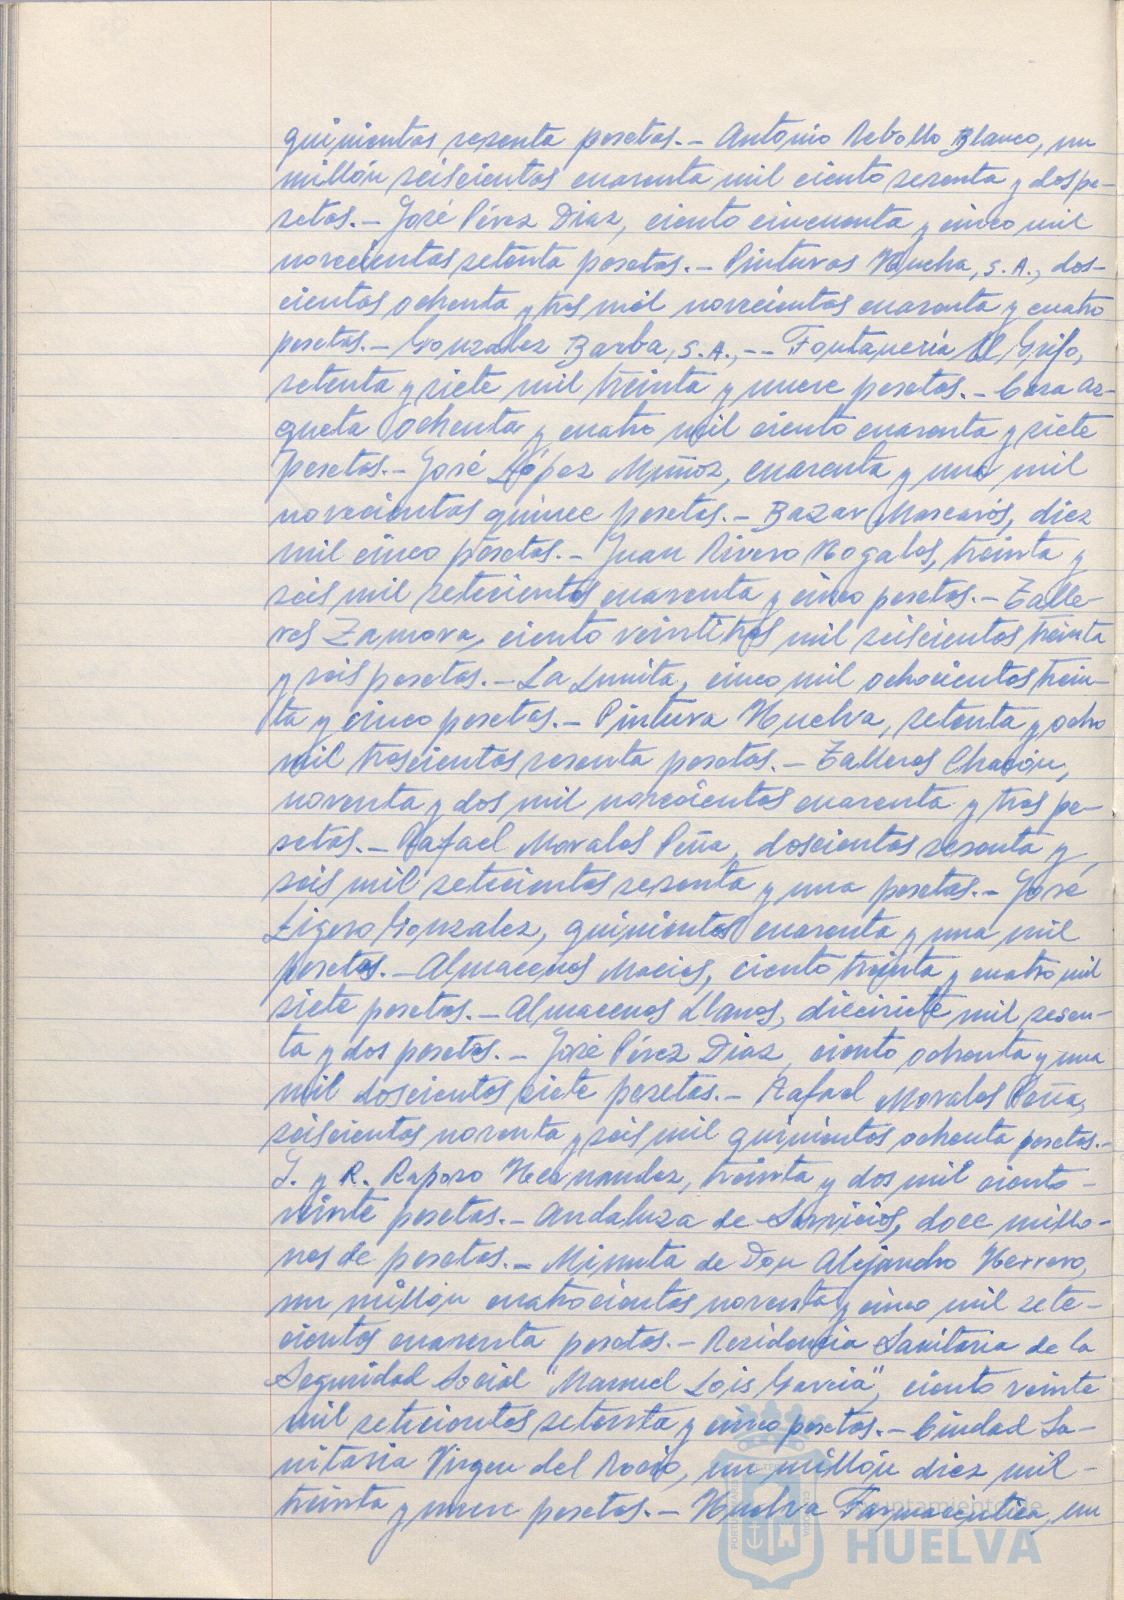 quinientas sesenta pesetas.- Antonio Rebollo Blanco, un
millón seiscientas cuarenta mil ciento sesenta y dos pe-
setas.- José Pérez Diaz, ciento cincuenta y cinco mil
novecientas setenta pesetas.- Pinturas Hucha, S.A., dos-
cientas ochenta y tres mil novecientas cuarenta y cuatro
pesetas.- Gonzalez Barba, S.A., -- Fontanería El Grifo,
setenta y siete mil treinta y nueve pesetas.- Casa Az-
queta ochenta y cuatro mil ciento cuarenta y siete
pesetas.- José López Muñoz, cuarenta y una mil
novecientas quince pesetas.- Bazar Mascarós, diez
mil cinco pesetas.- Juan Rivero Nogales, treinta y
seis mil setecientas cuarenta y cinco pesetas.- Talle-
res Zamora, ciento veintitres mil seiscientas treinta
y seis pesetas.- La Lunita, cinco mil ochocientas trein-
ta y cinco pesetas.- Pintura Huelva, setenta y ocho
mil trescientas sesenta pesetas.- Talleres Chacón,
noventa y dos mil novecientas cuarenta y tres pe-
setas.- Rafael Morales Peña, doscientas sesenta y
seis mil setecientas sesenta y una pesetas.- José
Ligero Gonzalez, quinientas cuarenta y una mil
pesetas.- Almacenes Macias, ciento treinta y cuatro mil
siete pesetas.- Almacenes Llanos, diecisiete mil sesen-
ta y dos pesetas.- José Pérez Diaz, ciento ochenta y una
mil doscientas siete pesetas.- Rafael Morales Peña,
seiscientas noventa y seis mil quinientas ochenta pesetas.-
J. y R. Raposo Hernandez, treinta y dos mil ciento-
veinte pesetas.- Andaluza de Servicios, doce millo-
nes de pesetas.- Minuta de Don Alejandro Herrero,
un millón cuatrocientas noventa y cinco mil sete-
cientas cuarenta pesetas.- Residencia Sanitaria de la
Seguridad Social "Manuel Lois Garcia", ciento veinte
mil setecientas setenta y cinco pesetas.- Ciudad Sa-
nitaria Virgen del Rocío, un millón diez mil-
treinta y nueve pesetas.- Huelva Farmaceutica, un
Ayuntamiento de
HUELVA